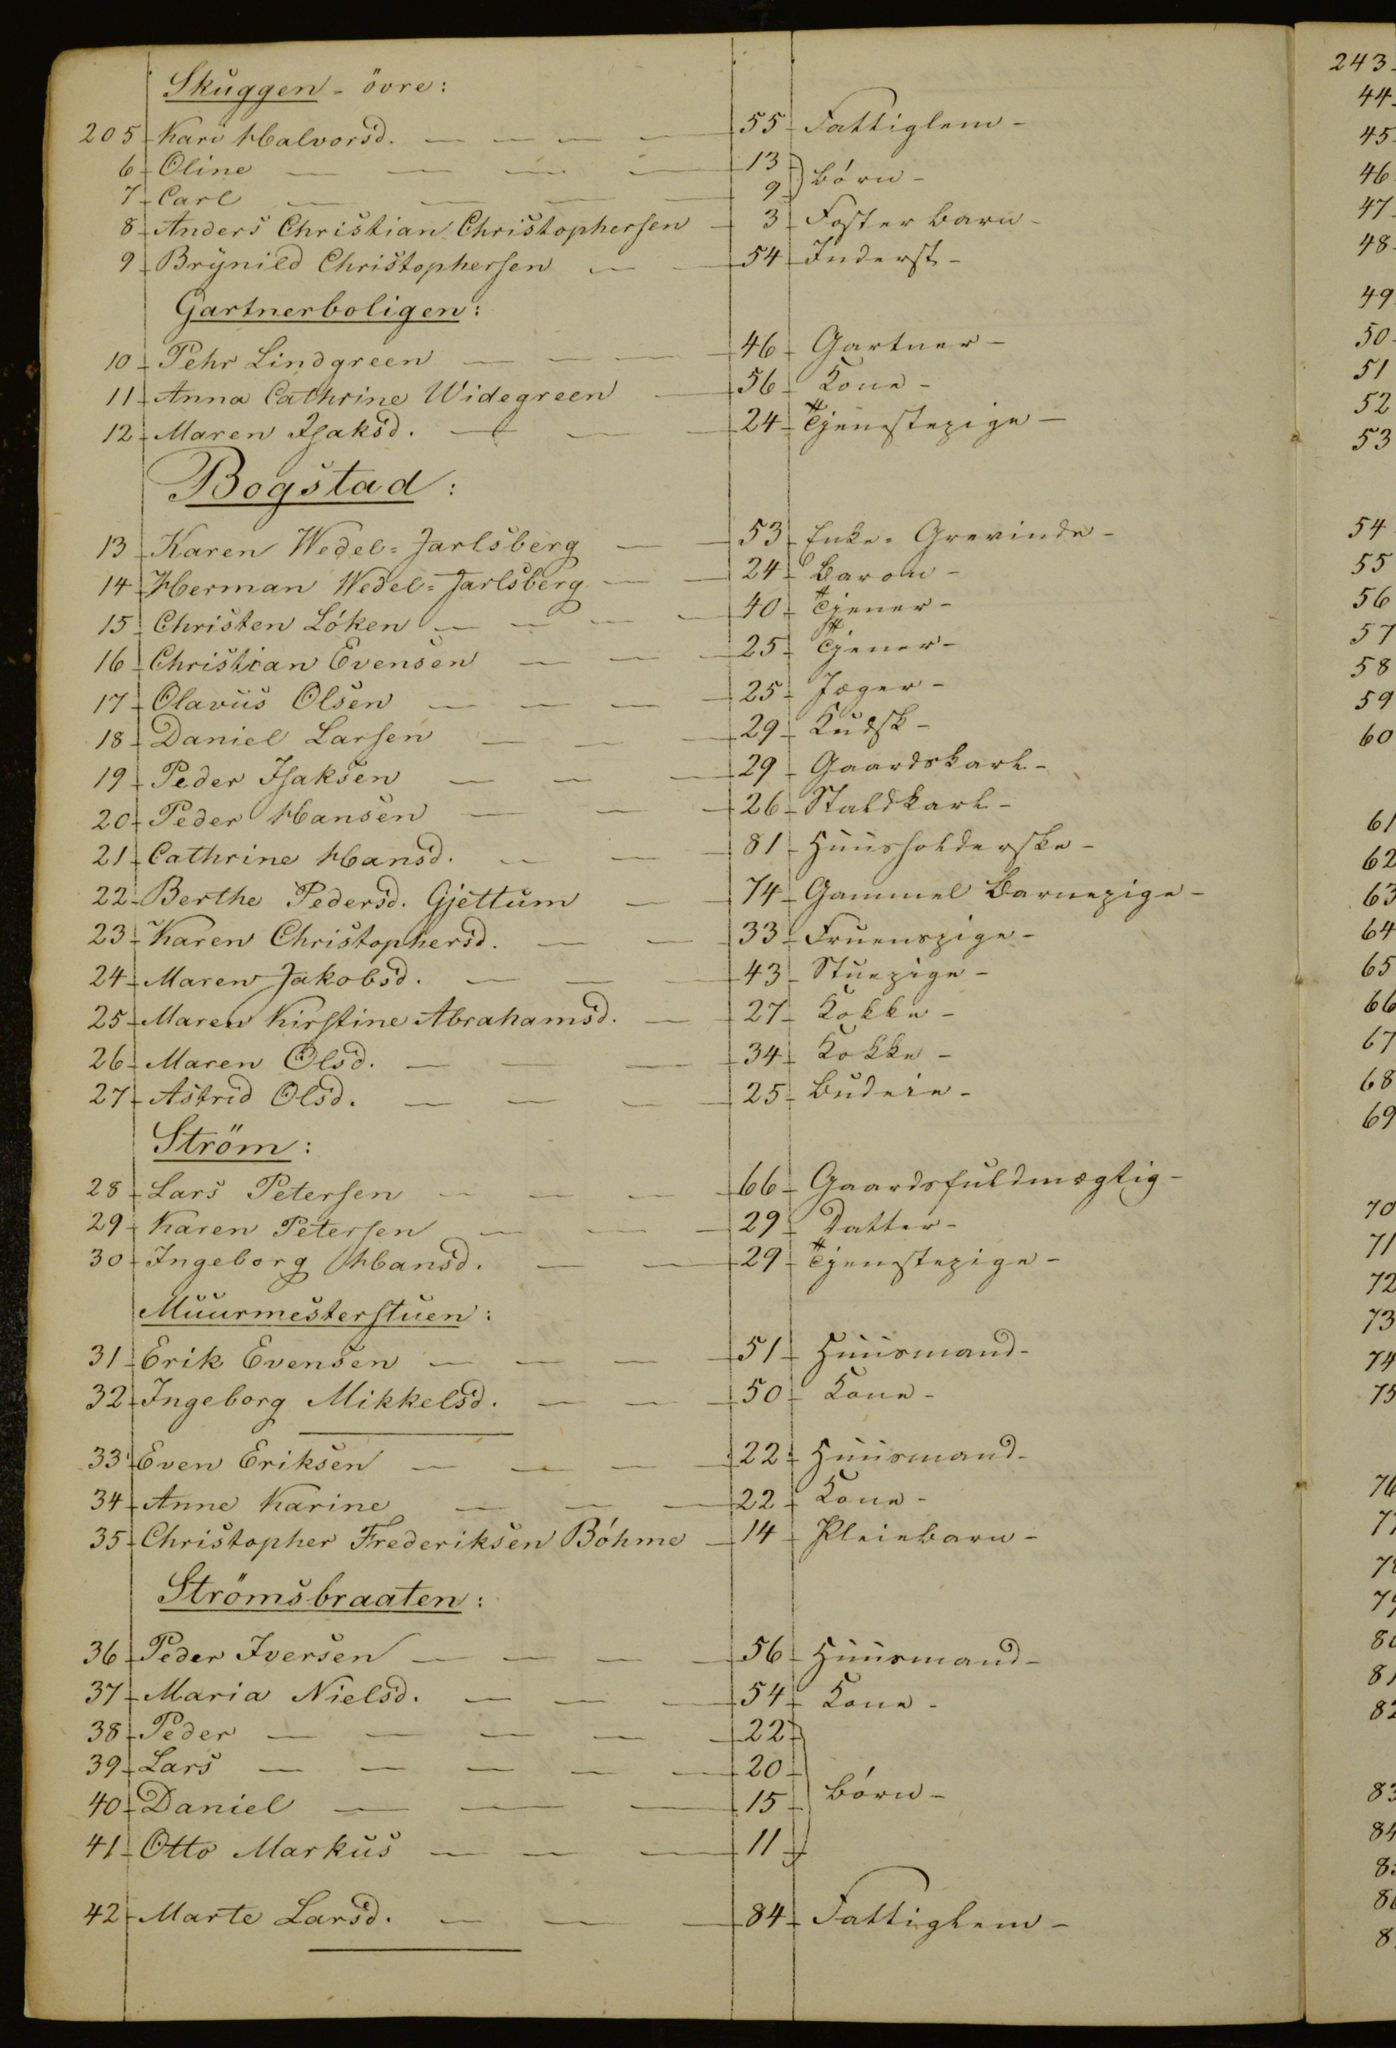 Skuggen - övre:
205 Kari Halvorsd. — — — — 55 Fattiglem -
6 Oline — — — — 13
7 Carl — — — — 9 } børn -
8 Anders Christian Christophersen — 3 Foster barn -
9 Brÿnild Christophersen — — 54 Inderst -
Gartnerboligen:
10 Pehr Lindgreen — — — — 46 Gartner -
11 Anna Cathrine Widegreen — 56 Kone -
12 Maren Isaksd. — — — 24 Tjenestepige -
Bogstad:
13 Karen Wedel=Jarlsberg — — 53 Enke= Grevinde -
14 Herman Wedel=Jarlsberg — — 24 Baron -
15 Christen Løken — — — — 40 Tjener -
16 Christian Evensen — — — 25 Tjener -
17 Olavus Olsen — — — — 25 Jæger -
18 Daniel Larsen — — — 29 Kudsk -
19 Peder Isaksen — — — 29 Gaardskarl -
20 Peder Hansen — — — 26 Staldkarl -
21 Cathrine Hansd. — — — 81 Huusholderske -
22 Berthe Pedersd. Gjettum — — 74 Gammel Barnepige -
23 Karen Christophersd. — — 33 Fruenspige -
24 Maren Jakobsd. — — — 43 Stuepige -
25 Maren Kirstine Abrahamsd. — 27 Kokke -
26 Maren Olsd. — — — 34 Kokke -
27 Astrid Olsd. — — — — 25 Budeie -
Ström:
28 Lars Petersen — — — — 66 Gaardsfuldmægtig -
29 Karen Petersen — — — 29 Datter -
30 Ingeborg Hansd. — — 29 Tjenestepige -
Muurmesterstuen:
31 Erik Evensen — — — — 51 Huusmand -
32 Ingeborg Mikkelsd. — — — 50 Kone -
33 Even Eriksen — — — — 22 Huusmand -
34 Anne Karine — — — 22 Kone -
35 Christopher Frederiksen Bøhme — 14 Pleiebarn -
Strömsbraaten:
36 Peder Iversen — — — — 56 Huusmand -
37 Maria Nielsd. — — — 54 Kone -
38 Peder — — — — — 22
39 Lars — — — — — 20
40 Daniel — — — 15 } børn -
41 Otto Markus — — — 11
42 Marte Larsd. — — — 84 Fattiglem -
243
44
45
46
47
48
49
50
51
52
53
54
55
56
57
58
59
60
61
62
63
64
65
66
67
68
69
70
71
72
73
74
75
76
79
81
82
83
84